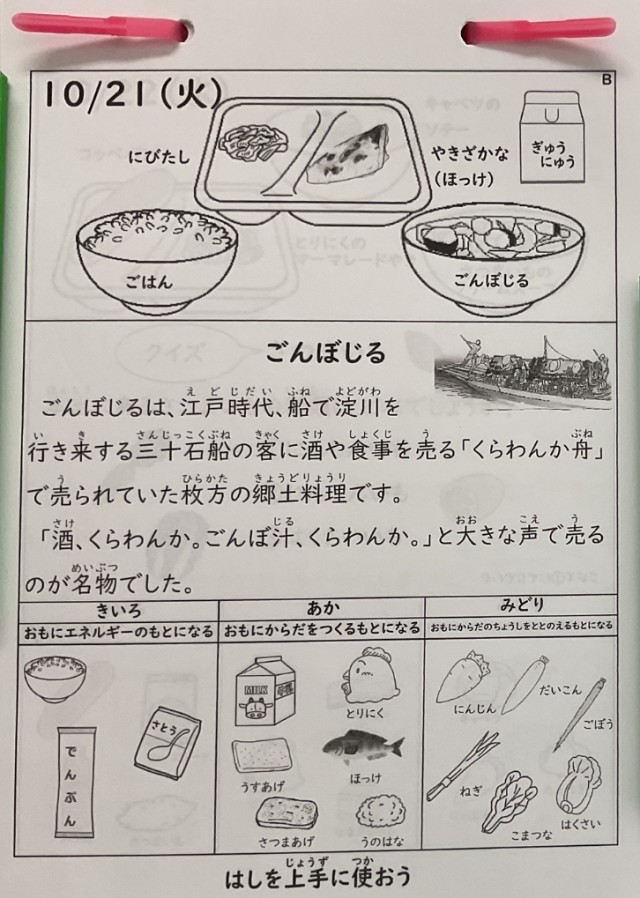 B
10/21(火)
にびたし
やきざかな
(ほっけ)
ぎゅう
にゅう
ごはん
ごんぼじる
ごんぼじる
ごんぼじるは、江戸時代、船で淀川を
行き来する三十石船の客に酒や食事を売る「くらわんか舟」
で売られていた枚方の郷土料理です。
「酒、くらわんか。ごんぼ汁、くらわんか。」と大きな声で売る
のが名物でした。
きいろ
おもにエネルギーのもとになる
でんぷん
さとう
あか
おもにからだをつくるもとになる
MILK
とりにく
うすあげ
ほっけ
さつまあげ
うのはな
みどり
おもにからだのちょうしをととのえるもとになる
にんじん
だいこん
ごぼう
ねぎ
こまつな
はくさい
はしを上手に使おう